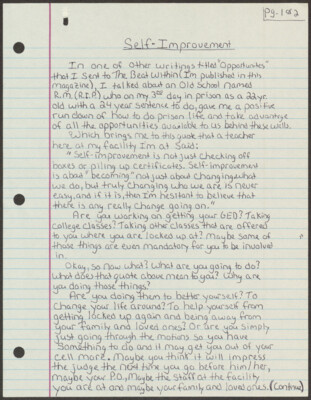 Pg. 1 of 2
Self-Improvement
In one of other writings titled "Opportunites"
that I sent to The Beat Within (I'm published in this
magazine), I talked about an Old School named
R.M. (R.I.P.) who on my 3rd day in prison as a 22yr.
old with a 24 year sentence to do, gave me a positive
run down of how to do prison life and take advantage
of all the opportunities available to us behind these walls.
Which brings me to this quote that a teacher
here at my facility I'm at said:
"Self-improvement is not just checking off
boxes or piling up certificates. Self-improvement
is about "becoming" not just about changing what
we do, but truly changing who we are is never
easy, and if it is, then I'm hesitant to believe that
there is any really change going on."
Are you working on getting your GED? Taking
college classes? Taking other classes that are offered
to you where you are locked up at? Maybe some of
those things are even mandatory for you to be involved
in.
Okay, so now what? What are you going to do?
What does that quote above mean to you? Why are
you doing those things?
Are you doing them to better yourself? To
change your life around? To help yourself from
getting locked up again and being away from
your family and loved ones? Or are you simply
just going through the motions so you have
something to do and it may get you out of your
cell more. Maybe you think it will impress
the judge the next time you go before him/her,
maybe your P.O., Maybe the staff at the facility
you are at and maybe your family and loved ones. (Continue)